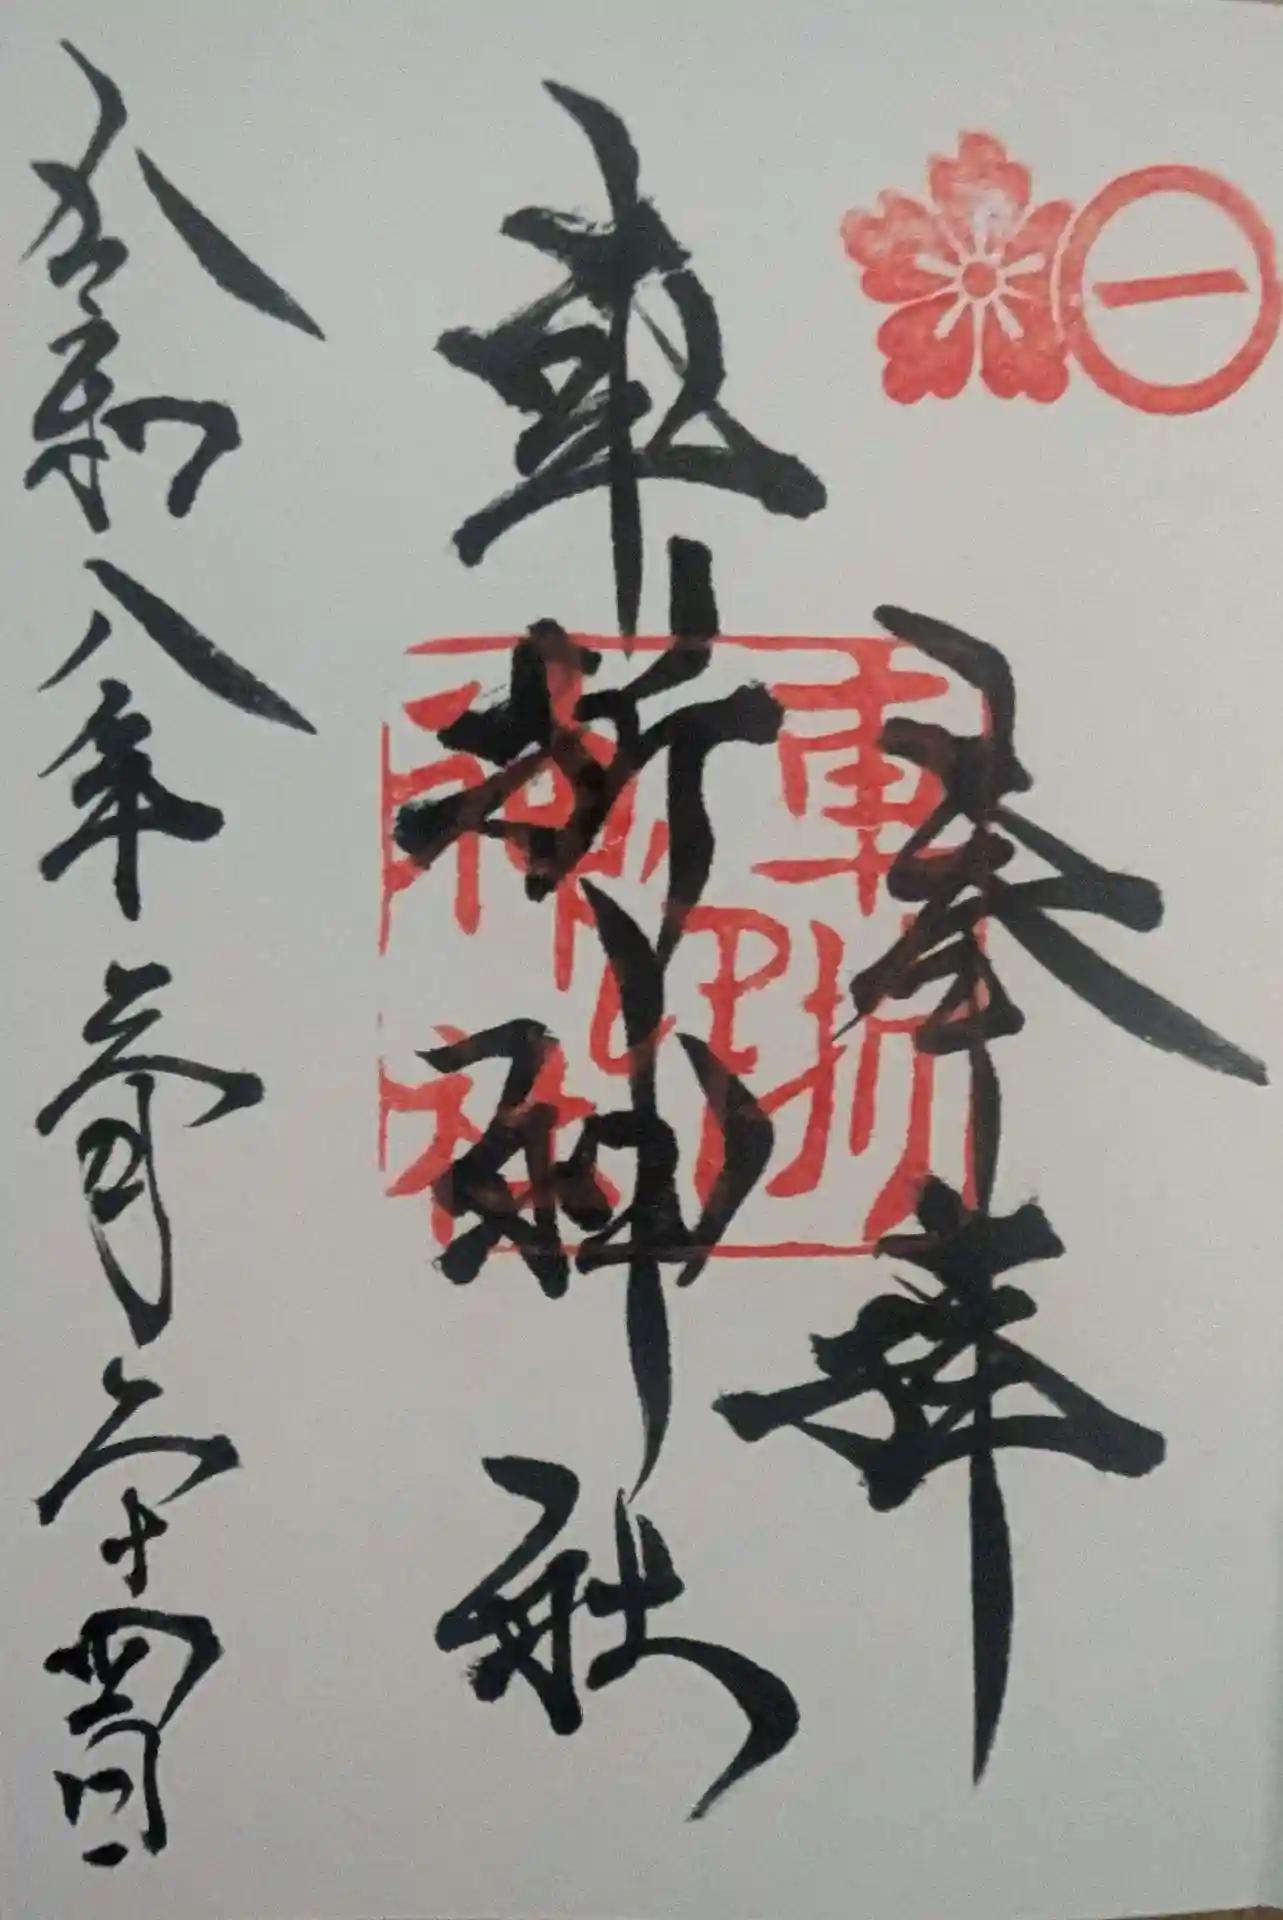 一
奉拝
車折神社
車折神社之印
令和八年 月 十四日